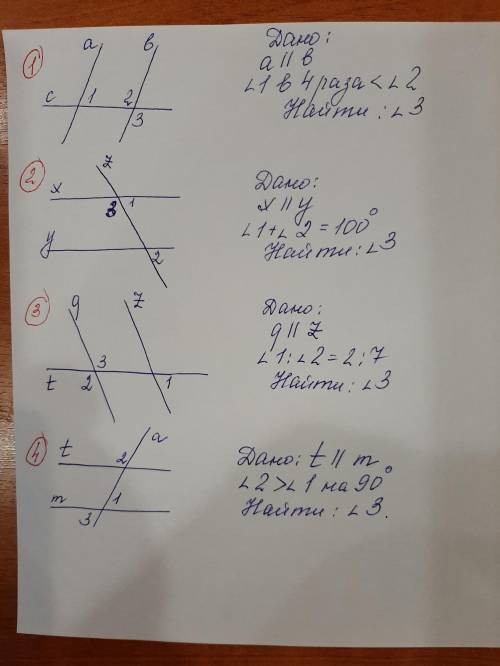 1
a
в
c
1
2
3
Дано:
a || в
∠1 в 4 раза < ∠2
Найти: ∠3
2
z
x
3
1
y
2
Дано:
x || y
∠1+∠2=100°
Найти: ∠3
3
g
z
3
t
2
1
Дано:
g || z
∠1:∠2=2:7
Найти: ∠3
4
a
t
2
m
1
3
Дано: t || m
∠2>∠1 на 90°
Найти: ∠3.